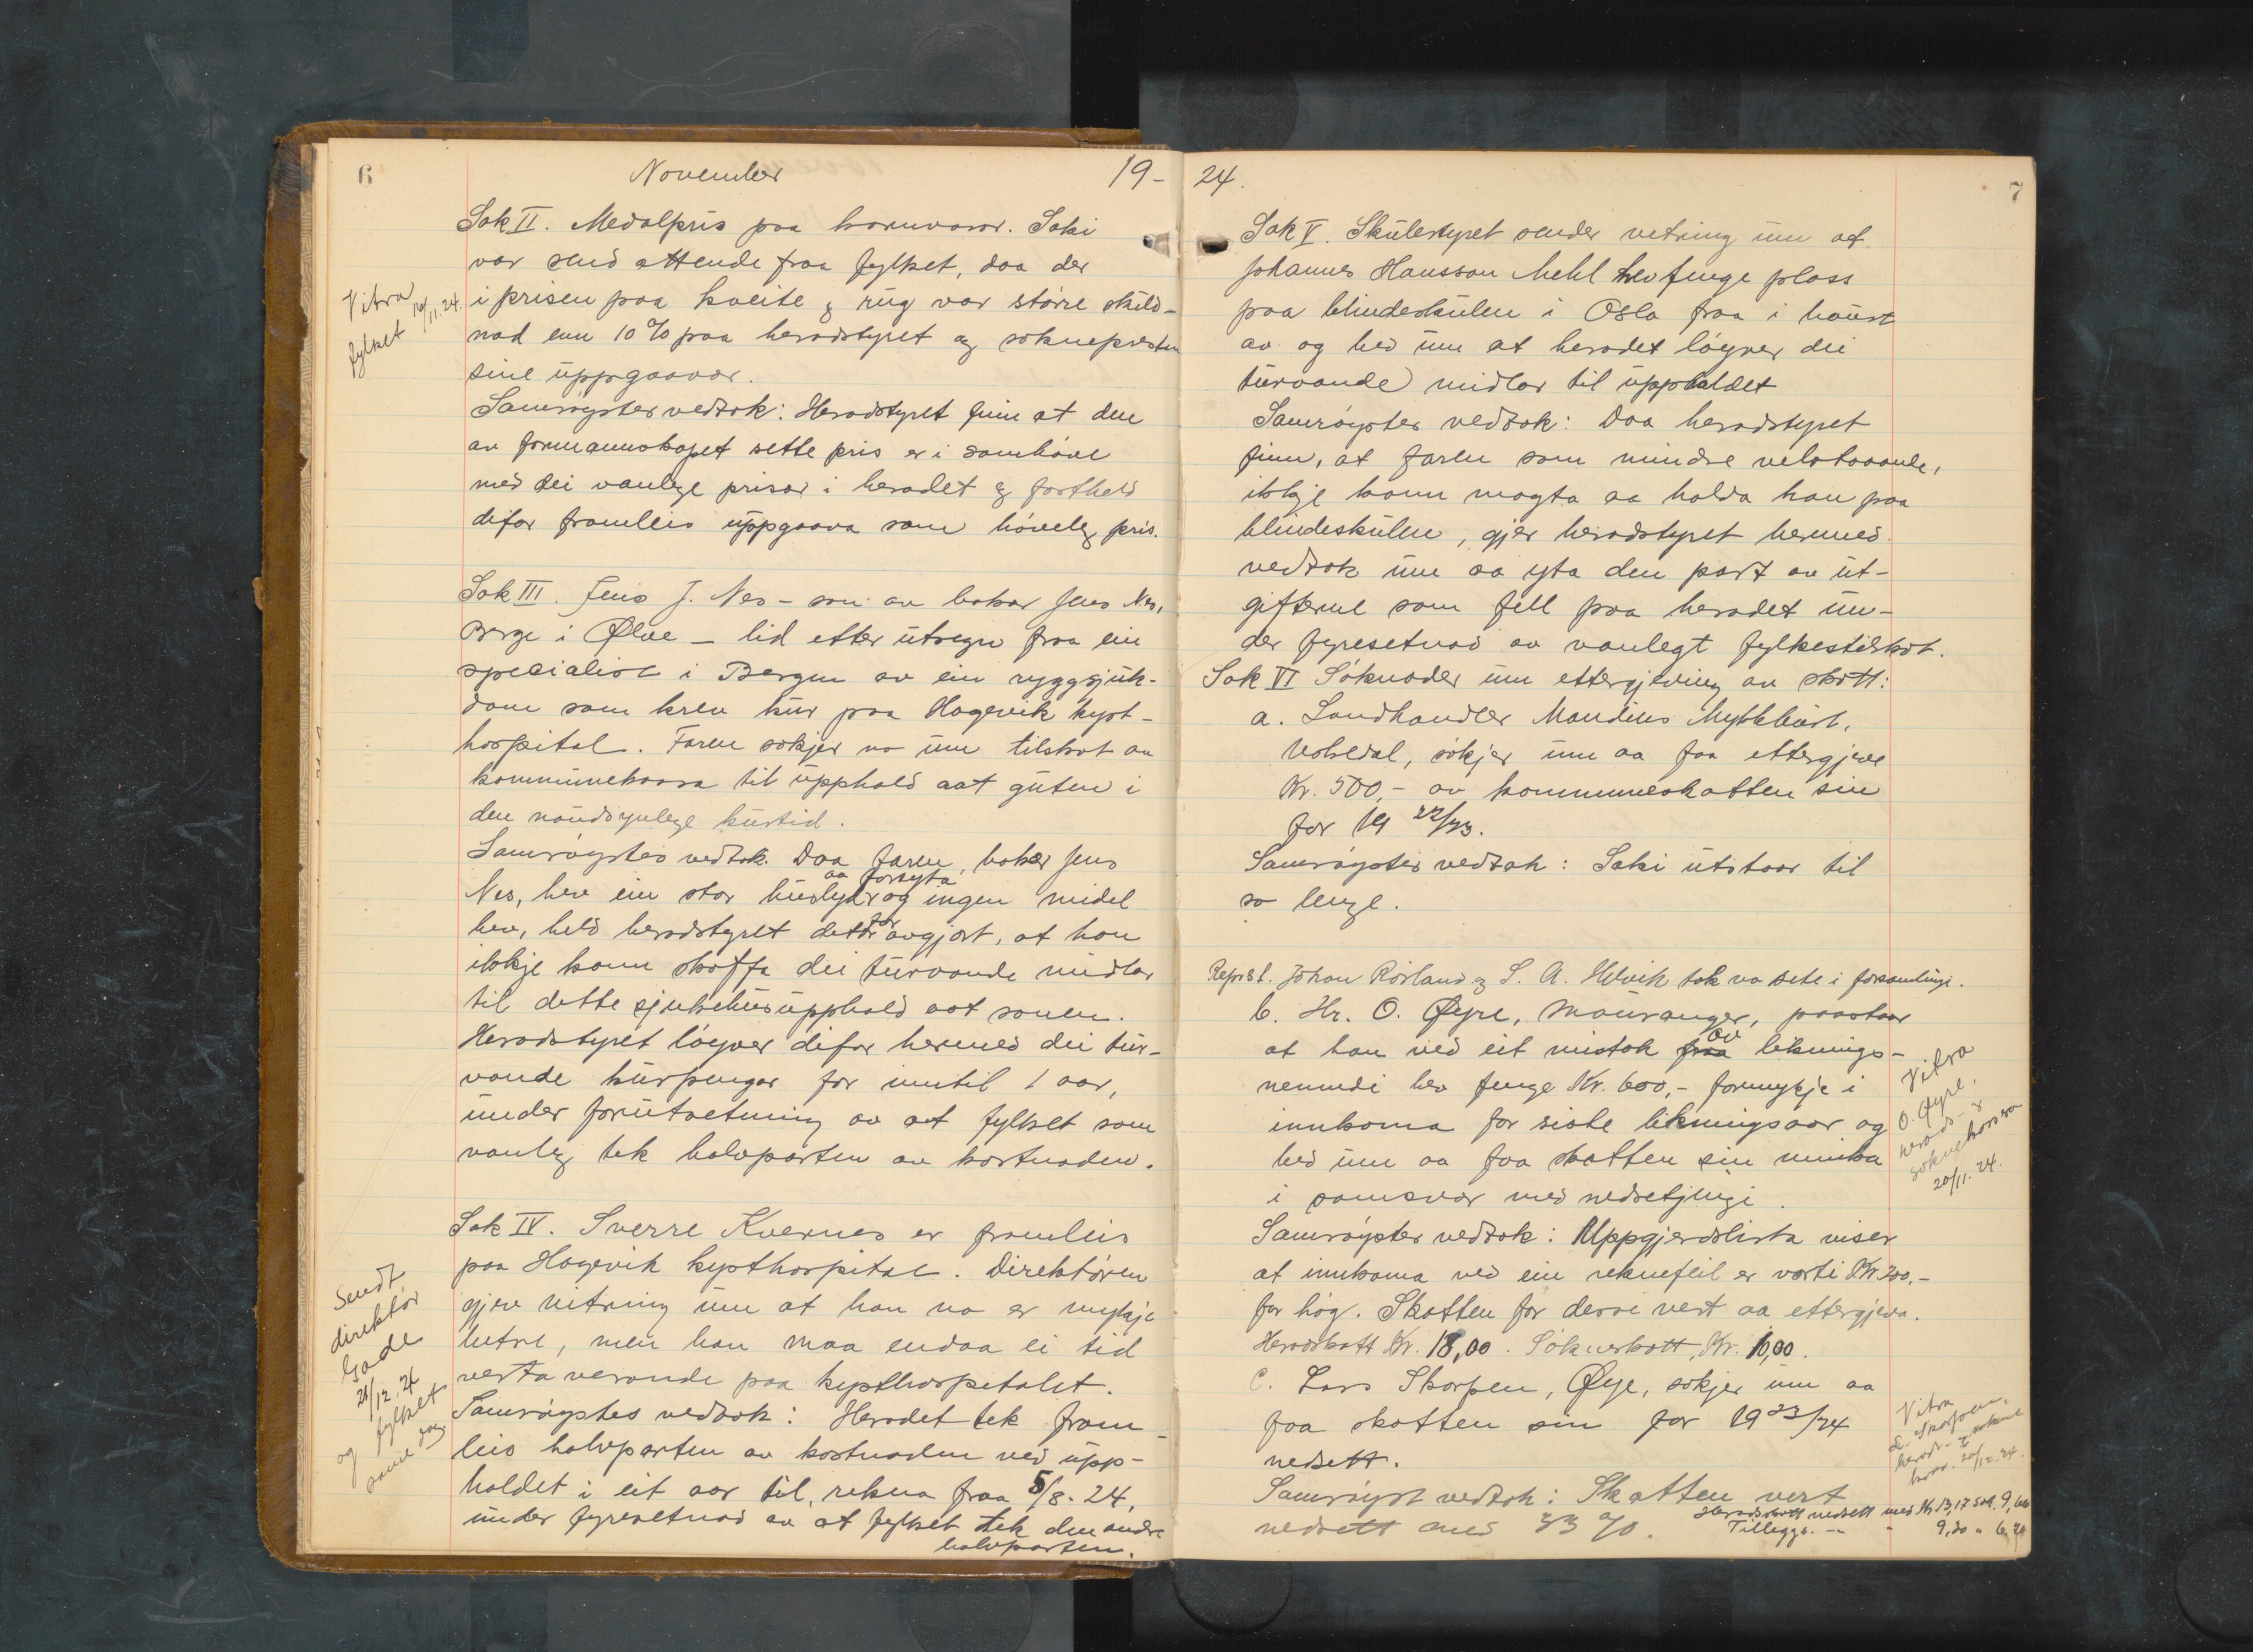 6 November 19-
Sak II. Medalpris paa kornvaror. Saki
var send attende fraa fylket, daa der
i prisen paa kveite & rug var större skild-
nad enn 10 % paa heradstyret og soknepresten
sine uppgaavor.
Samröystes vedtok: Heradstyret finn at den
av formannskapet sette pris er i samhöve
med dei vanlege prisar i heradet & fortheld
difor framleis uppgaava som höveleg pris.
Vitra
fylket 19/11.24.
Sak III. Jens J. Nes - son av bakar Jens Nes,
Berge i Ølve - lid etter utsegn fraa ein
specialist i Bergen av ein ryggsjuk-
dom som krev kur paa Hagevik kyst-
hospital. Faren sökjer no um tilskot av
kommunekassa til upphald aat guten i
den naudsynlege kurtid.
Samröystes vedtok. Daa faren, bakar Jens
Nes, hev ein stor huslyd aa forsyta og ingen midel
hev, held heradstyret det for avgjort, at han
ikkje kann skaffa dei turvande midlar
til dette sjukehusupphald aat sonen.
Heradstyret löyver difor hermed dei tur-
vande kurpengar for inntil 1 aar,
under forutsetning av at fylket som
vanleg tek halvparten av kostnaden.
Sak IV. Sverre Kvernes er framleis
paa Hagevik kysthospital. Direktören
gjev vitring um at han no er mykje
betre, men han maa endaa ei tid
verta verande paa kysthospitalet.
Samröystes vedtok: Heradet tek fram-
leis halvparten av kostnaden ved upp-
haldet i eit aar til, rekna fraa 5/8. 24,
under fyresetnad av at fylket tek den andre
halvparten.
Sendt
direktör
Gade
21/12.24
og fylket
same dag
24. 7
Sak V. Skulestyret sender vitring um at
Johannes Hansson Mehl hev fenge plass
paa blindeskulen i Oslo fraa i haust
av og bed um at heradet löyver dei
turvande midlar til upphaldet
Samröystes vedtok: Daa heradstyret
finn, at faren som mindre velstaaande,
ikkje kann magta aa halda han paa
blindeskulen, gjer heradstyret hermed
vedtak um aa yta den part av ut-
gifterne som fell paa heradet un-
der fyresetnad av vanlegt fylkestilskot.
Sak VI Söknader um ettergjeving av skatt:
a. Landhandlar Mandius Myklebust,
sökjer um aa faa ettergjeve
Kr. 500,- av kommuneskatten sin
for 19 22/23.
Samröystes vedtak: Saki utstaar til
so lenge.
Reprst. Johan Rörland & S. A. Helvik tok no sete i forsamlingi.
b. Hr. O. Øyre, Mauranger, paastaar
at han ved eit mistak av liknings-
nemndi hev fenge Kr. 600,- formykje i
innkoma for siste likningsaar og
bed um aa faa skatten sin minka
i samsvar med nedsetjingi.
Samröystes vedtok: Uppgjerdslista viser
at innkoma ved ein reknefeil er vorti Kr. 300,-
for hög. Skatten for dessi vert aa ettergjeva.
Heradskatt Kr. 18,00. Sokneskatt, Kr. 10,00.
Vitra
O. Øyre.
herads- &
soknekassa
20/11. 24.
C. Lars Skarpen, Øye, sökjer um aa
faa skatten sin for 19 23/24
nedsett.
Samröyst vedtok: Skatten vert
nedsett med 33 %.
Heradskatt nedsett med Kr. 13,17 Sok. 9,
Tilleggs. - " - 9,30 "
Vitra
L. Skarpen,
herads- & sokne
kass. 20/12.24.